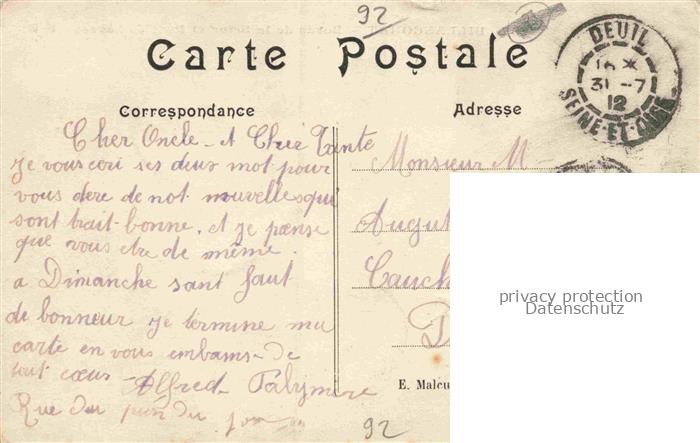 92
Carte Postale
DEUIL
16 *
31 - 7
12
SEINE-ET-OISE
Correspondance
Adresse
Cher Oncle - et Cher Tante
je vous ecri ses deux mot pour
vous dere de not nouvelles qui
sont trait-bonne. et je pense
que vous etre de même.
a Dimanche sant faut
de bonneur je termine ma
carte en vous embams- de
tout cœur - Alfred Palymire
Rue du
Monsieur M
August
Cauch
E. Malcu
privacy protection
Datenschutz
92